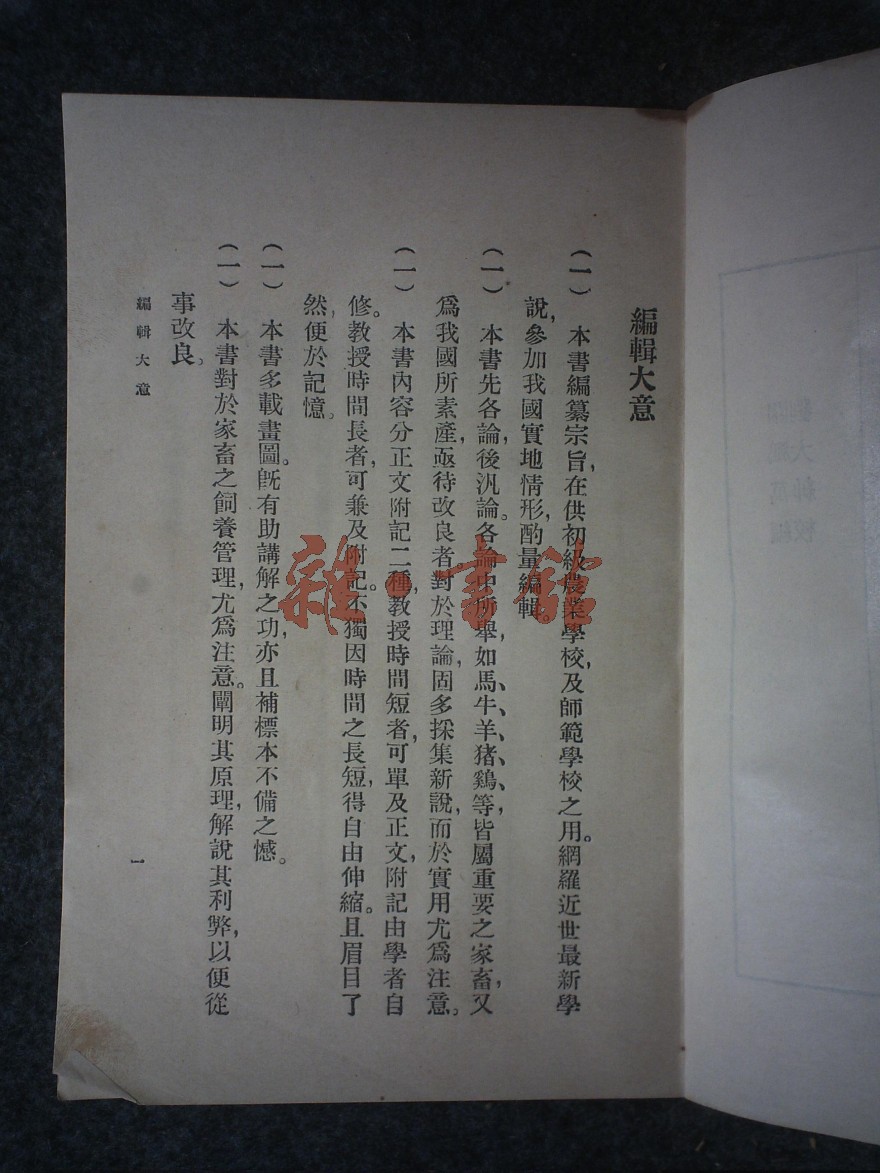 編輯大意
（一）　本書編纂宗旨，在供初級農業學校，及師範學校之用。網羅近世最新學
說，參加我國實地情形，酌量編輯。
（一）　本書先各論，後汎論。各論中所舉，如馬、牛、羊、猪、鷄、等，皆屬重要之家畜，又
爲我國所素產，亟待改良者，對於理論，固多採集新說，而於實用尤爲注意。
（一）　本書內容分正文附記二種，教授時間短者，可單及正文，附記由學者自
修。教授時間長者，可兼及附記。不獨因時間之長短，得自由伸縮。且眉目了
然，便於記憶。
（一）　本書多載畫圖。旣有助講解之功，亦且補標本不備之憾。
（一）　本書對於家畜之飼養管理，尤爲注意。闡明其原理，解說其利弊，以便從
事改良。
編輯大意
一
雜·書館